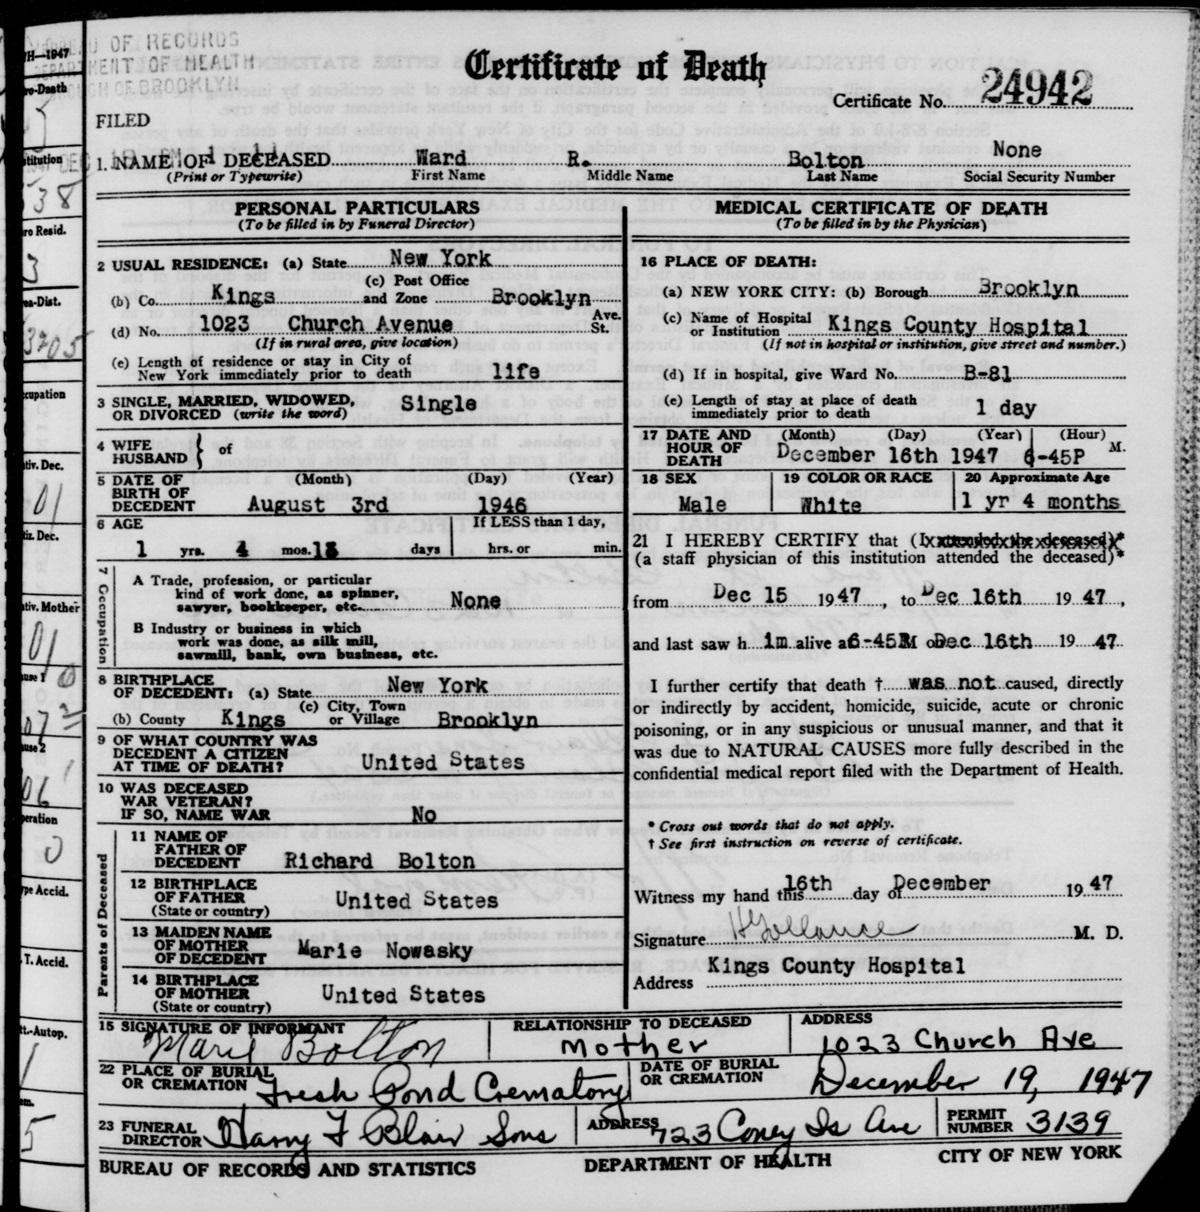 H—1947
BUREAU OF RECORDS
DEPARTMENT OF HEALTH
BOROUGH OF BROOKLYN
ro-Death
FILED
Certificate of Death
Certificate No. 24942
stitution
38
ro Resid.
3
ea-Dist.
3205
cupation
tiv. Dec.
01
tiz. Dec.
tiv. Mother
01
ause 1
0
07
ause 2
06
peration
0
ype Accid.
T. Accid.
t.-Autop.
1
em.
5
1. NAME OF DECEASED Ward R. Bolton None
(Print or Typewrite) First Name Middle Name Last Name Social Security Number
PERSONAL PARTICULARS
(To be filled in by Funeral Director)
2 USUAL RESIDENCE: (a) State New York
(b) Co. Kings (c) Post Office and Zone Brooklyn
(d) No. 1023 Church Avenue Ave. St.
(If in rural area, give location)
(e) Length of residence or stay in City of
New York immediately prior to death life
3 SINGLE, MARRIED, WIDOWED,
OR DIVORCED (write the word) Single
4 WIFE
HUSBAND } of
5 DATE OF (Month) (Day) (Year)
BIRTH OF
DECEDENT August 3rd 1946
6 AGE If LESS than 1 day,
1 yrs. 4 mos. 13 days hrs. or min.
7 Occupation
A Trade, profession, or particular
kind of work done, as spinner,
sawyer, bookkeeper, etc. None
B Industry or business in which
work was done, as silk mill,
sawmill, bank, own business, etc.
8 BIRTHPLACE
OF DECEDENT: (a) State New York
(b) County Kings (c) City, Town or Village Brooklyn
9 OF WHAT COUNTRY WAS
DECEDENT A CITIZEN
AT TIME OF DEATH? United States
10 WAS DECEASED
WAR VETERAN?
IF SO, NAME WAR No
Parents of Deceased
11 NAME OF
FATHER OF
DECEDENT Richard Bolton
12 BIRTHPLACE
OF FATHER
(State or country) United States
13 MAIDEN NAME
OF MOTHER
OF DECEDENT Marie Nowasky
14 BIRTHPLACE
OF MOTHER
(State or country) United States
MEDICAL CERTIFICATE OF DEATH
(To be filled in by the Physician)
16 PLACE OF DEATH:
(a) NEW YORK CITY: (b) Borough Brooklyn
(c) Name of Hospital
or Institution Kings County Hospital
(If not in hospital or institution, give street and number.)
(d) If in hospital, give Ward No. B-81
(e) Length of stay at place of death
immediately prior to death 1 day
17 DATE AND (Month) (Day) (Year) (Hour)
HOUR OF
DEATH December 16th 1947 6-45P M.
18 SEX 19 COLOR OR RACE 20 Approximate Age
Male White 1 yr 4 months
21 I HEREBY CERTIFY that (I attended the deceased)*
(a staff physician of this institution attended the deceased)*
from Dec 15 1947, to Dec 16th 1947,
and last saw h im alive at 6-45P M on Dec 16th 1947.
I further certify that death † was not caused, directly
or indirectly by accident, homicide, suicide, acute or chronic
poisoning, or in any suspicious or unusual manner, and that it
was due to NATURAL CAUSES more fully described in the
confidential medical report filed with the Department of Health.
* Cross out words that do not apply.
† See first instruction on reverse of certificate.
Witness my hand this 16th day of December 1947
Signature M. D.
Kings County Hospital
Address
15 SIGNATURE OF INFORMANT RELATIONSHIP TO DECEASED ADDRESS
Marie Bolton Mother 1023 Church Ave
22 PLACE OF BURIAL
OR CREMATION Fresh Pond Crematory DATE OF BURIAL OR CREMATION December 19, 1947
23 FUNERAL
DIRECTOR Harry T Blair Sons ADDRESS 723 Coney Is Ave PERMIT NUMBER 3139
BUREAU OF RECORDS AND STATISTICS DEPARTMENT OF HEALTH CITY OF NEW YORK